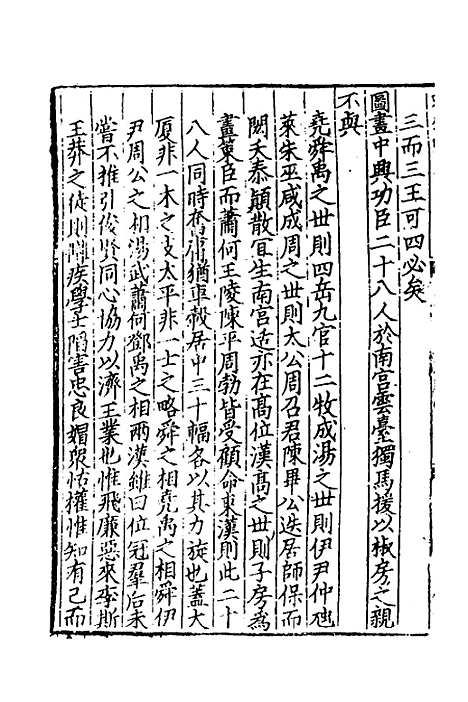 三而三王可四必矣
圖畫中興功臣二十八人於南宫雲臺獨馬援以椒房之親
不與
堯舜禹之世則四岳九官十二牧成湯之世則伊尹仲虺
萊朱巫咸成周之世則太公周召君陳畢公迭居師保而
閎夭泰顛散宜生南宫适亦在髙位漢髙之世則子房爲
畫策臣而蕭何王陵陳平周勃皆受顧命東漢則此二十
八人同時奮庸猶車轂居中三十輻各以其力旋也蓋大
厦非一木之支太平非一士之略舜之相堯禹之相舜伊
尹周公之相湯武蕭何鄧禹之相兩漢雖曰位冠羣后未
嘗不推引俊賢同心協力以濟王業也惟飛廉惡來李斯
王莽之徒則嫉學士陷害忠良媚衆怙權惟知有己而